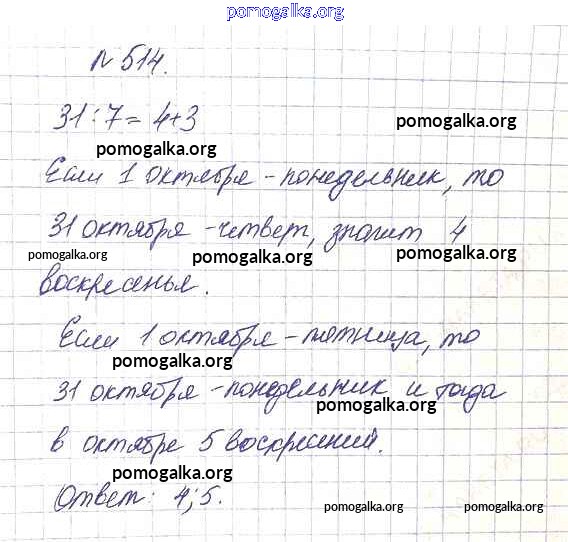 pomogalka.org
N 514.
31 : 7 = 4+3
pomogalka.org
pomogalka.org
Если 1 октября - понедельник, то
31 октября - четверг, значит 4
pomogalka.org pomogalka.org pomogalka.org
воскресенья.
Если 1 октября - пятница, то
pomogalka.org
31 октября - понедельник и тогда
pomogalka.org
в октябре 5 воскресений.
pomogalka.org
Ответ: 4; 5.
pomogalka.org pomogalka.org